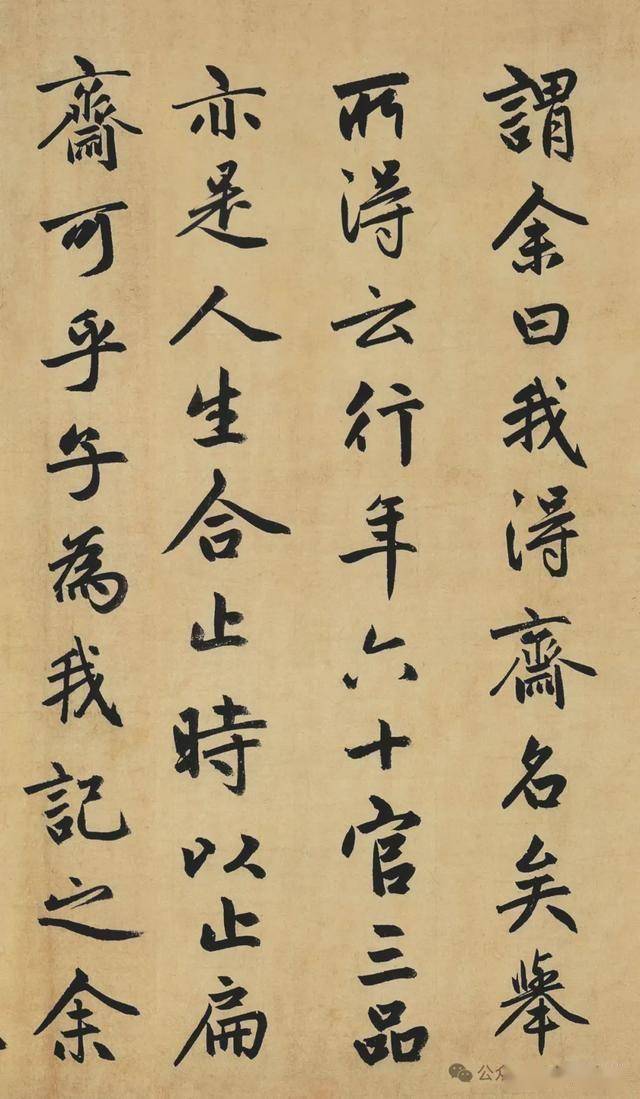 謂余曰我得齋名矣舉
所得云行年六十官三品
亦是人生合止時以止扁
齋可乎子為我記之余
公众